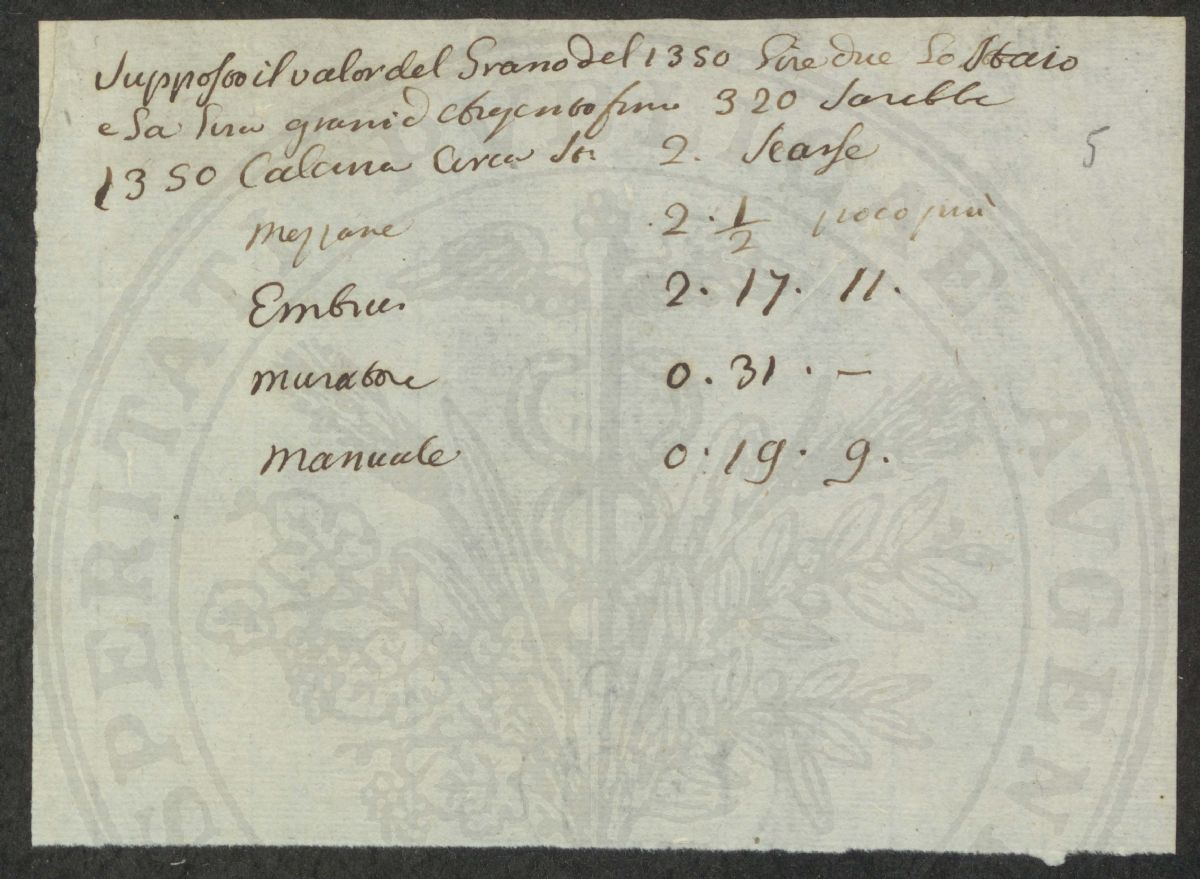 Supposto il valor del Grano del 1350 Lire due Lo Staio
e La Lira grani d'Argento fino 320 Sarebbe
1350 Calcina Circa St: 2. Scarse
Mezzane 2. 1/2 poco più
Embrici 2. 17. 11.
Muratore 0. 31. —
Manuale 0. 19. 9.
5
SPERITATI PUBLICAE AUGEN